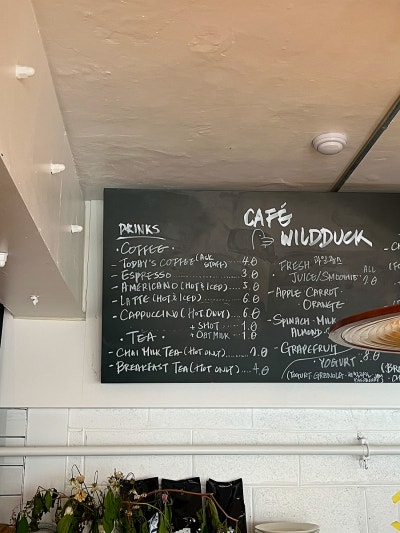 DRINKS
CAFÉ
WILDDUCK
· COFFEE ·
- TODAY'S COFFEE (ASK STAFF) .... 4.0
- ESPRESSO ............ 3.0
- AMERICANO (HOT & ICED) ...... 5.0
- LATTE (HOT & ICED) ........ 6.0
- CAPPUCCINO (HOT ONLY) .... 6.0
+ SHOT ... 1.0
+ OAT MILK .. 1.0
· TEA ·
- CHAI MILK TEA (HOT ONLY) ......
- BREAKFAST TEA (HOT ONLY) .... 4.0
· FRESH
JUICE/SMOOTHIE ALL
- APPLE CARROT ·
ORANGE
- SPINACH · MILK
ALMOND ·
- GRAPEFRUIT
· YOGURT · 8.0
(YOGURT GRANOLA